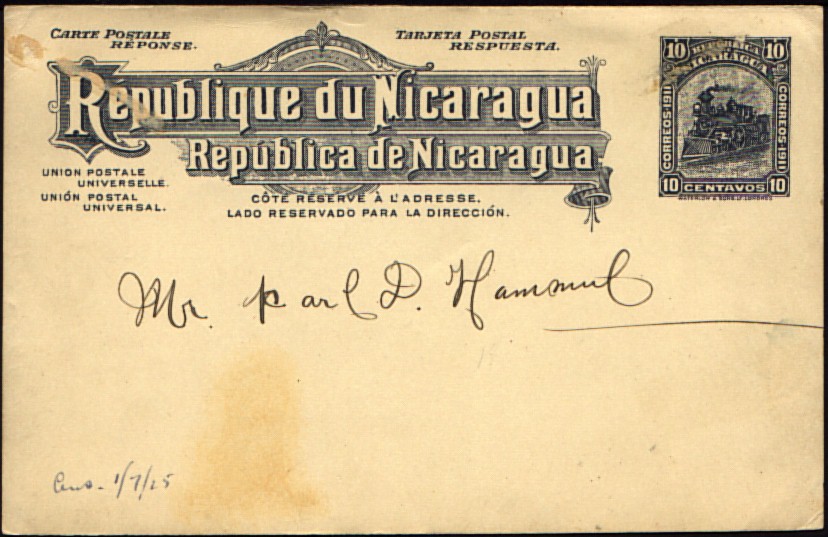 CARTE POSTALE
RÉPONSE.
TARJETA POSTAL
RESPUESTA.
République du Nicaragua
República de Nicaragua
UNION POSTALE
UNIVERSELLE.
UNIÓN POSTAL
UNIVERSAL.
CÔTÉ RÉSERVÉ À L'ADRESSE.
LADO RESERVADO PARA LA DIRECCIÓN.
10 REPUBLICA 10
NICARAGUA
CORREOS 1911
CORREOS 1911
10 CENTAVOS 10
WATERLOW & SONS LD LONDRES
Mr. Karl D. Hammel
1/7/25